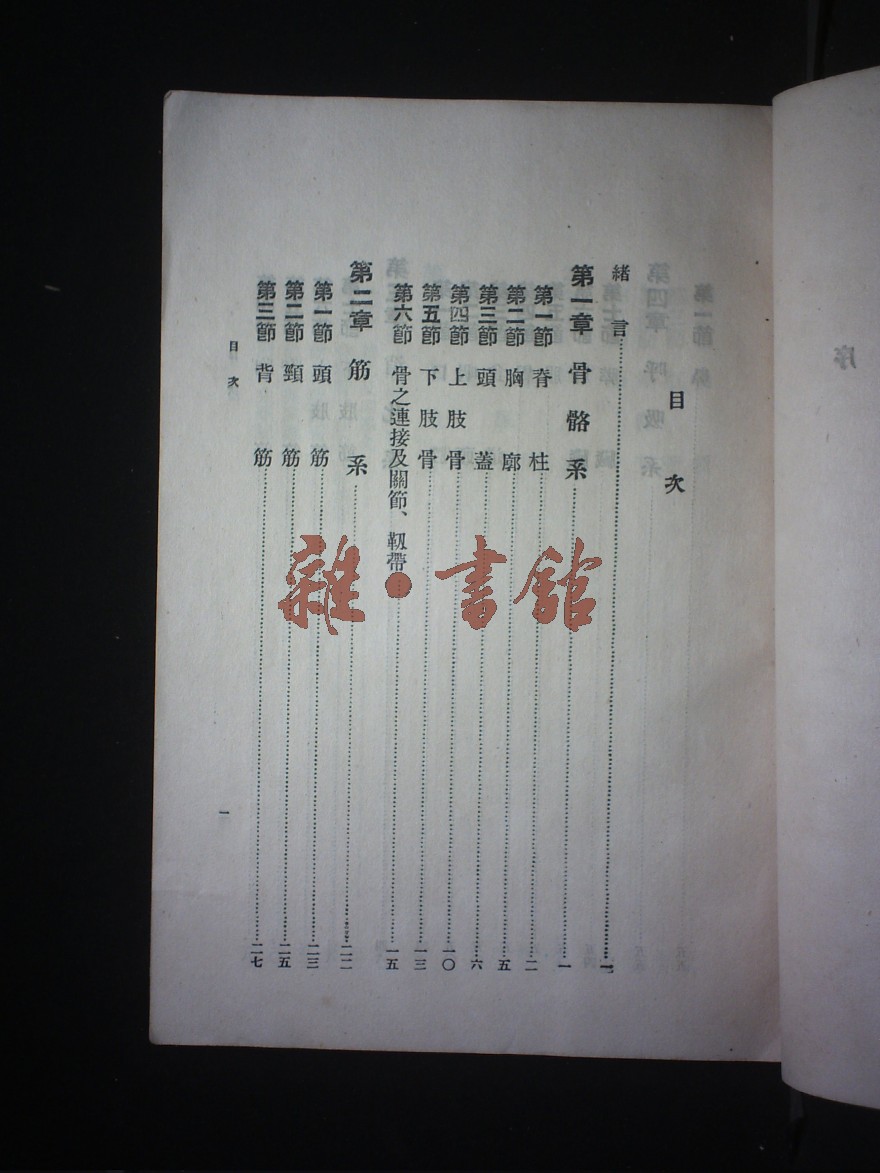 目次
緒言 一
第一章 骨骼系 一
第一節 脊柱 二
第二節 胸廓 五
第三節 頭蓋 六
第四節 上肢骨 一〇
第五節 下肢骨 一三
第六節 骨之連接及關節、韌帶 一五
第二章 筋系 二二
第一節 頭筋 二三
第二節 頸筋 二五
第三節 背筋 二七
目次
一
雜·書館
序